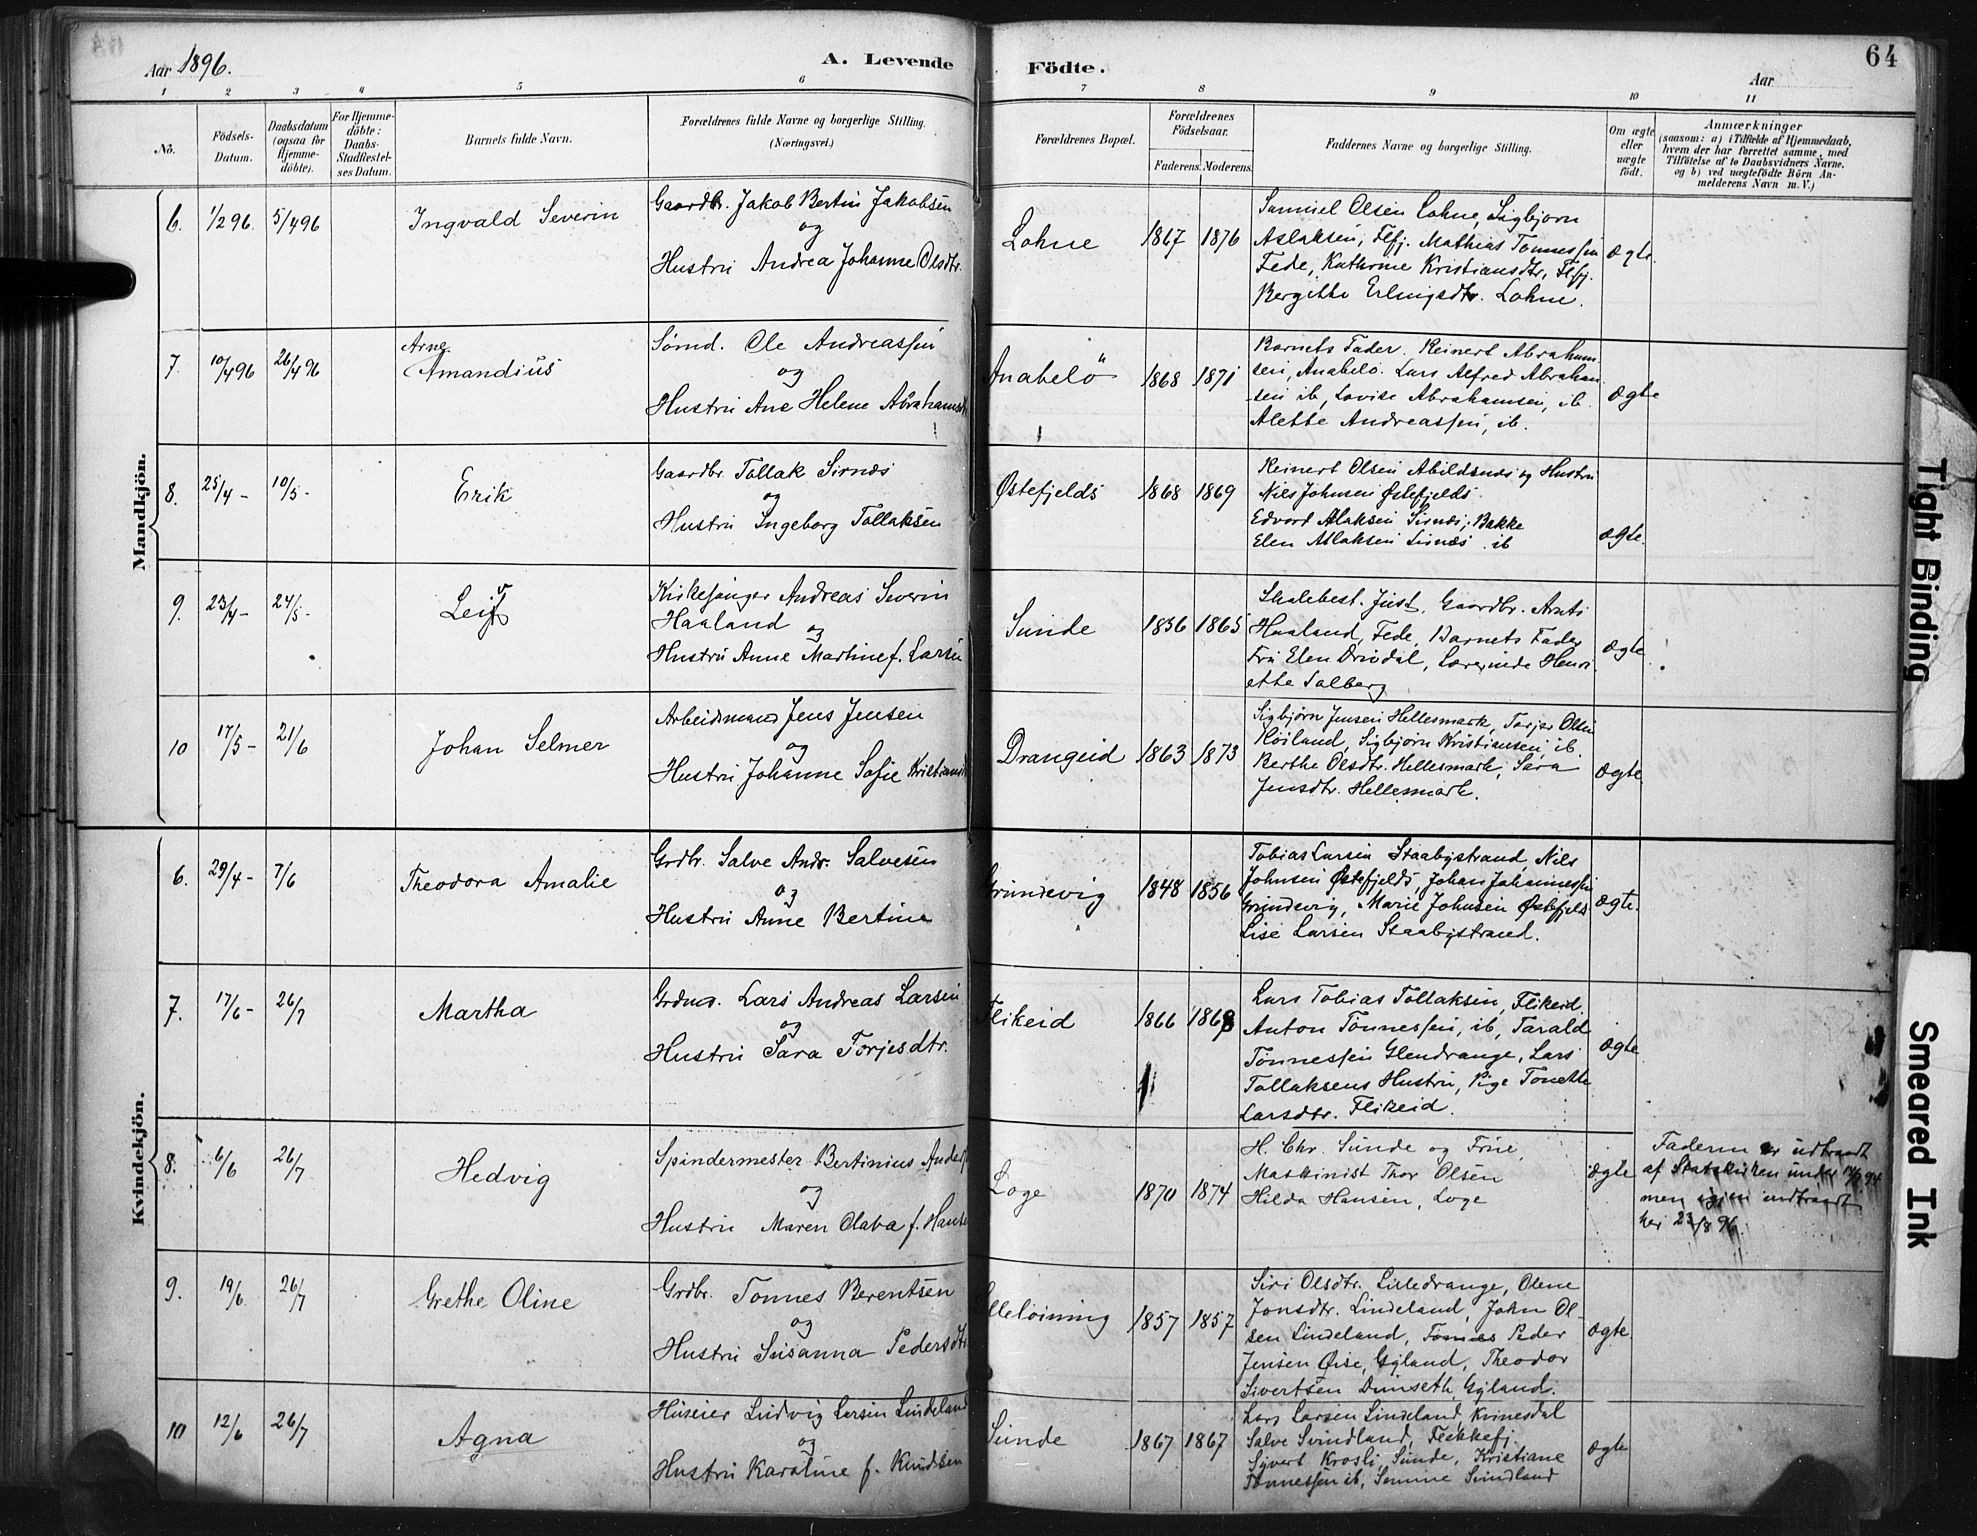 Aar 1896.
A. Levende
Födte.
64
Aar
1 2 3 4 5 6 7 8 9 10 11
No.
Födsels-Datum.
Daabsdatum (ogsaa for Hjemmedöbte).
For Hjemmedöbte: Daabs-Stadfæstelses Datum.
Barnets fulde Navn.
Forældrenes fulde Navne og borgerlige Stilling.
(Næringsvei.)
Forældrenes Bopæl.
Forældrenes Födselsaar.
Faderens. Moderens.
Faddernes Navne og borgerlige Stilling.
Om ægte eller uægte födt.
Anmærkninger
(saasom: a) i Tilfælde af Hjemmedaab, hvem der har forrettet samme, med Tilföielse af to Daabsvidners Navne, og b) ved uægtefödte Börn Anmelderens Navn m. V.)
Mandkjön.
6. 1/2 96. 5/4 96 Ingvald Severin
Gaardbr. Jakob Bertin Jakobsen
og
Hustru Andrea Johanne Olsdtr.
Lohne 1867 1876
Samuel Olsen Lohne, Sigbjørn
Aslaksen, Flfj. Mathias Tønnessen
Fede, Kathrine Kristiansdtr, Flfj.
Bergitte Erlingsdtr. Lohne.
ægte.
7. 10/4 96 26/4 96 Arne
Amandius
Sømd. Ole Andreassen
og
Hustru Ane Helene Abrahamsdtr
Anabelö 1868 1871
Barnets Fader. Reinert Abraham-
sen, Anabelö. Lars Alfred Abraham-
sen ib, Lovise Abrahamsen, ib.
Alette Andreassen, ib.
ægte
8. 25/4 - 10/5 - Erik
Gaardbr. Tollak Sirnæs
og
Hustru Ingeborg Tollaksen
Østefjelds 1868 1869
Reinert Olsen Abildsnæs og Hustru
Nils Johnsen Østefjelds
Edvard Aslaksen Sirnæs, Bakke
Elen Aslaksen Sirnæs ib
ægte.
9. 23/4 - 24/5 - Leif
Kirkesanger Andreas Severin
Haaland og
Hustru Anne Martine f. Larsen
Sunde 1856 1865
Skolebest. Just, Gaardbr. Arnts
Haaland, Fede, Barnets Fader
Fru Elen Drivdal, Lærerinde Henri
ette Salberg
ægte
10 17/5 - 21/6 Johan Selmer
Arbeidsmand Jens Jensen
og
Hustru Johanne Sofie Kristiansdtr
Drangeid 1863 1873
Sigbjørn Jensen Hellesmark, Torjer Olsen
Høiland, Sigbjørn Kristiansen, ib
Berthe Olsdtr. Hellesmark, Sara
Jensdtr. Hellesmark.
ægte
Kvindekjön.
6. 29/4 - 7/6 Theodora Amalie
Grdbr. Salve Andr. Salvesen
og
Hustru Anne Bertine
Grundevig 1848 1856
Tobias Larsen Staabystrand Nils
Johnsen Østefjelds, Johan Johannessen
Grundevig, Marie Johnsen Østefjelds
Lise Larsen Staabystrand.
ægte.
7. 17/6 - 26/7 Martha
Grdmd. Lars Andreas Larsen
og
Hustru Sara Torjesdtr.
Flikeid 1866 1868
Lars Tobias Tollaksen, Flikeid.
Anton Tønnessen, ib, Tarald
Tønnessen Glendrange, Lars
Tollaksens Hustru, Pige Tonette
Larsdtr. Flikeid.
ægte
8. 6/6 26/7 Hedvig
Spindermester Bertinius Anders
og
Hustru Maren Olava f. Hansen
Loge 1870 1874
H. Chr. Sunde og Frue,
Maskinist Thor Olsen
Hilda Hansen, Loge
ægte
Faderen er udtraadt
af Statskirken under 14/6 94
men igjen indtraadt
her 23/8 96.
9. 19/6 26/7 Grethe Oline
Grdbr. Tonnes Berentsen
og
Hustru Susanna Pedersdtr
Lilleloining 1857 1857
Siri Olsdtr. Lilledrange, Olene
Jonsdtr. Lindeland, John Ol-
sen Lindeland, Tønnes Peder
Jensen Øise, Gyland, Theodor
Sivertsen Dunseth, Gyland.
ægte
10 12/6 26/7 Agna
Huseier Ludvig Larsen Lindeland
og
Hustru Karoline f. Knudsen
Sunde 1867 1867
Lars Larsen Lindeland, Kvinesdal
Salve Svindland, Flekkefj
Syvert Krosli, Sunde, Kristiane
Tønnessen ib, Semine Svindland
ægte
Tight Binding
Smeared Ink